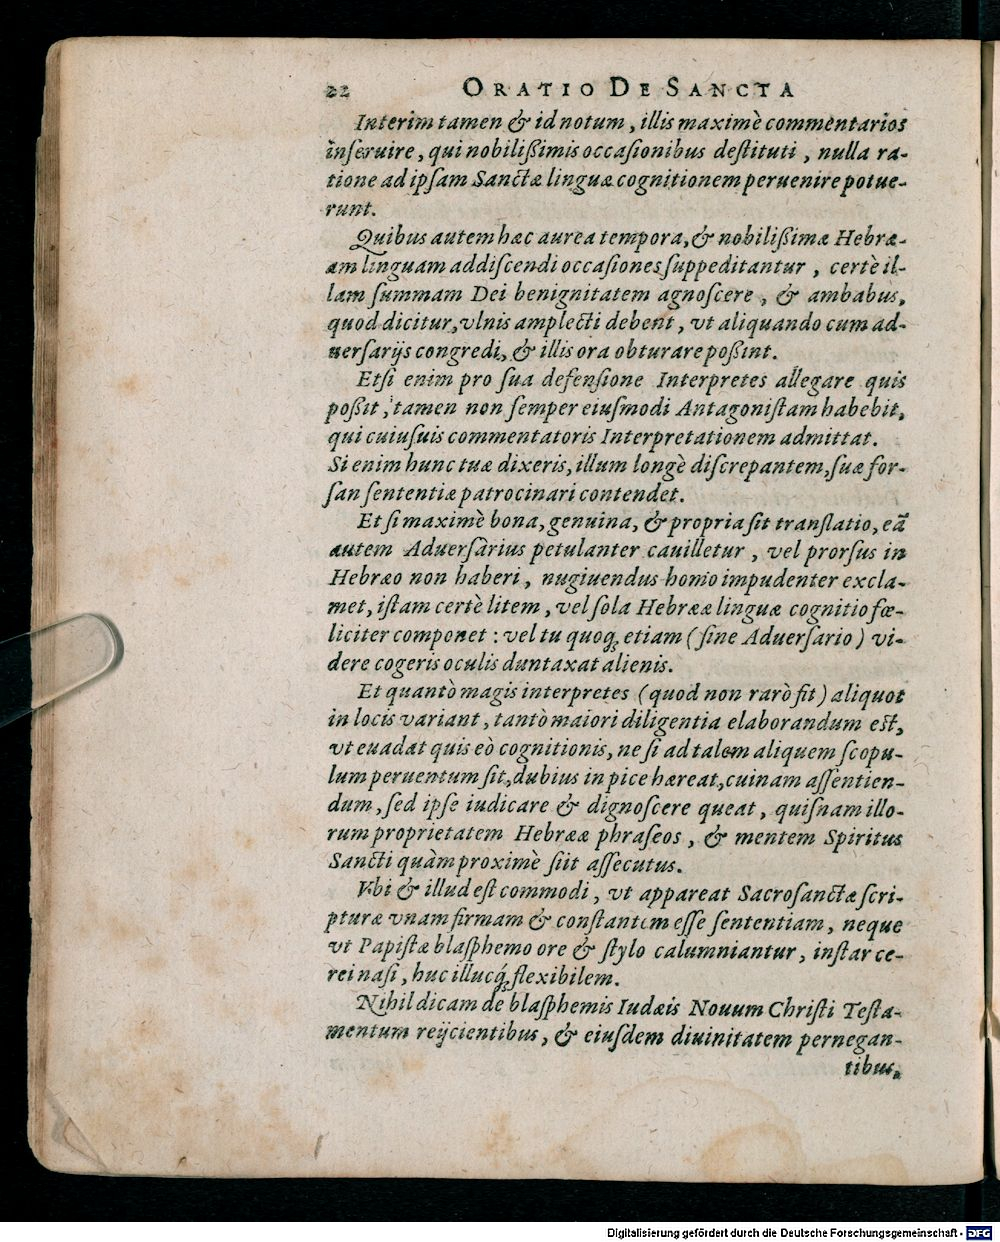 22 ORATIO DE SANCTA
Interim tamen & id notum, illis maximè commentarios
inſeruire, qui nobilißimis occaſionibus deſtituti, nulla ra-
tione ad ipſam Sanctæ linguæ cognitionem peruenire potue-
runt.
Quibus autem hæc aurea tempora, & nobilißimæ Hebræ-
am linguam addiſcendi occaſiones ſuppeditantur, certè il-
lam ſummam Dei benignitatem agnoſcere, & ambabus,
quod dicitur, vlnis amplecti debent, vt aliquando cum ad-
uerſarijs congredi, & illis ora obturare poßint.
Etſi enim pro ſua defenſione Interpretes allegare quis
poßit, tamen non ſemper eiuſmodi Antagoniſtam habebit,
qui cuiuſuis commentatoris Interpretationem admittat.
Si enim hunc tuæ dixeris, illum longè diſcrepantem, ſuæ for-
ſan ſententiæ patrocinari contendet.
Et ſi maximè bona, genuina, & propria ſit tranſlatio, eã
autem Aduerſàrius petulanter cauilletur, vel prorſus in
Hebræo non haberi, nugiuendus homo impudenter excla-
met, iſtam certè litem, vel ſola Hebrææ linguæ cognitio fœ-
liciter componet: vel tu quoq; etiam (ſine Aduerſario) vi-
dere cogeris oculis duntaxat alienis.
Et quantò magis interpretes (quod non rarò fit) aliquot
in locis variant, tantò maiori diligentia elaborandum eſt,
vt euadat quis eò cognitionis, ne ſi ad talem aliquem ſcopu-
lum peruentum ſit, dubius in pice hæreat, cuinam aſſentien-
dum, ſed ipſe iudicare & dignoſcere queat, quiſnam illo-
rum proprietatem Hebrææ phraſeos, & mentem Spiritus
Sancti quàm proximè ſiit aſſecutus.
Vbi & illud eſt commodi, vt appareat Sacroſanctæ ſcri-
pturæ vnam firmam & conſtantem eſſe ſententiam, neque
vt Papiſtæ blaſphemo ore & ſtylo calumniantur, inſtar ce-
rei naſi, huc illucq́; flexibilem.
Nihil dicam de blaſphemis Iudæis Nouum Chriſti Teſta-
mentum reijcientibus, & eiuſdem diuinitatem pernegan-
tibus,
Digitalisierung gefördert durch die Deutsche Forschungsgemeinschaft - DFG